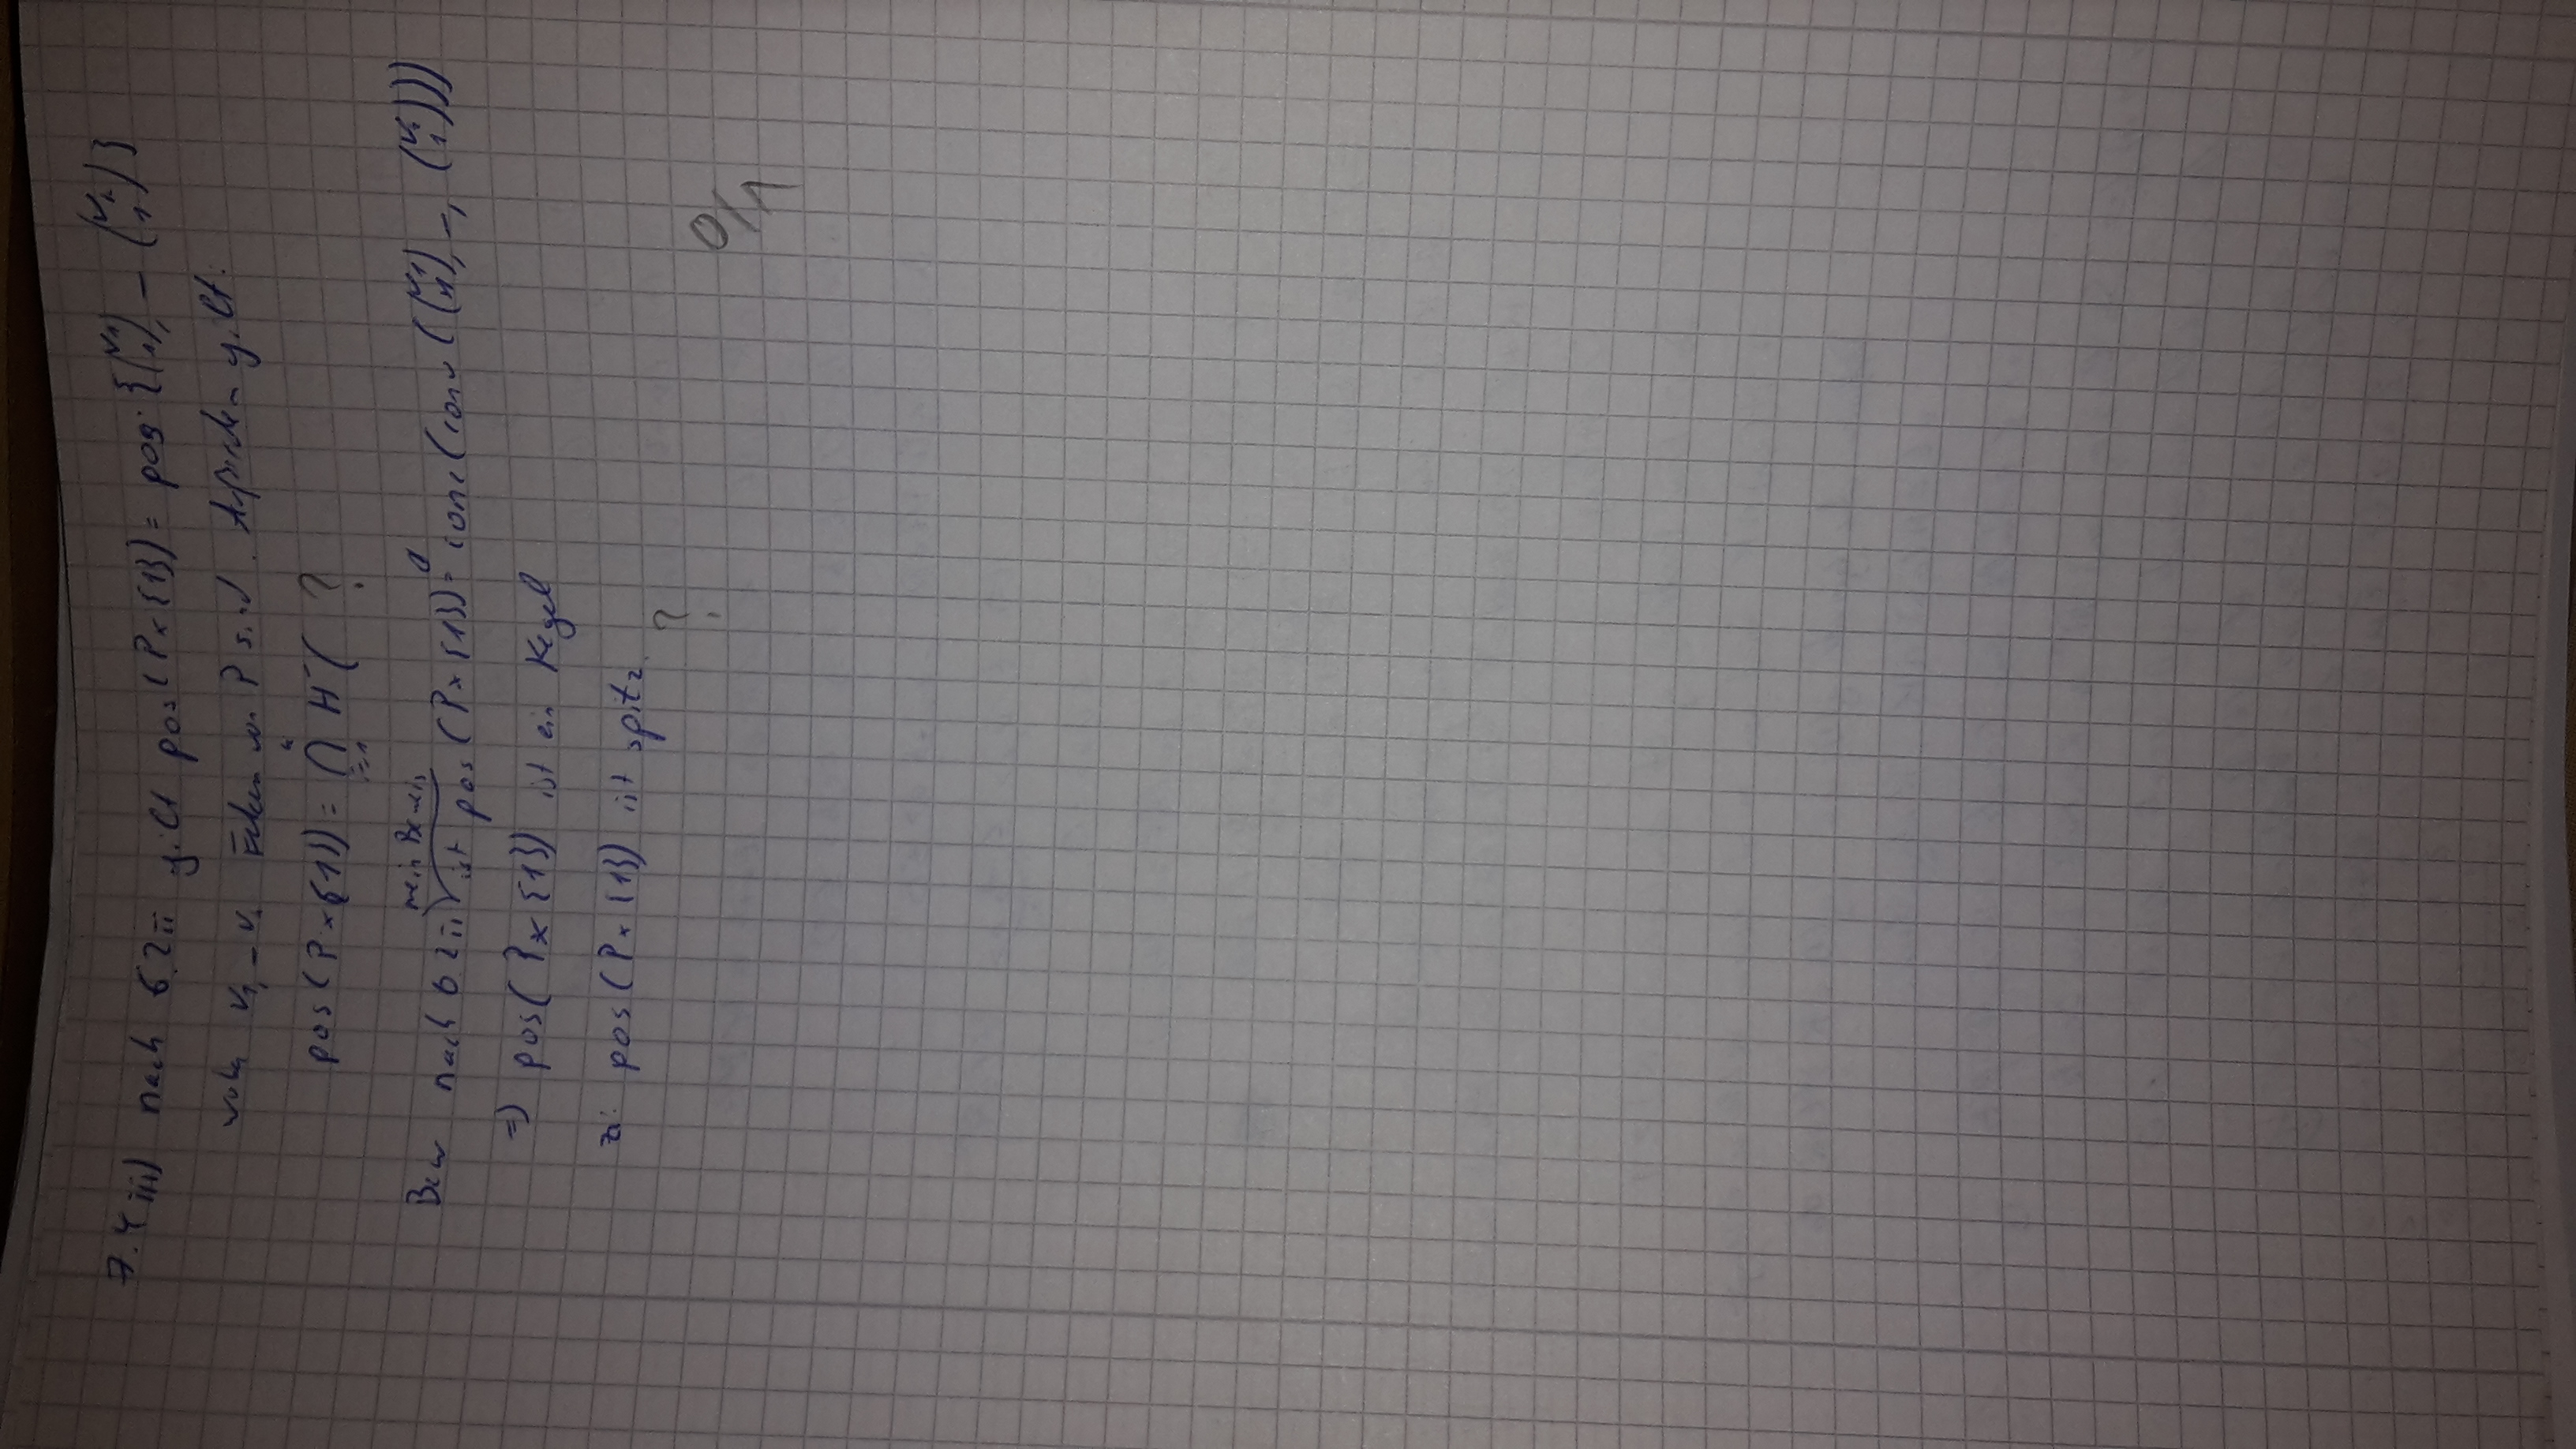 7.4 iii) nach 6.2ii gilt pos(P×{1}) = pos {(v₁ 1), – (vₙ 1)}
wobei v₁, – vₙ Ecken von P sind. Außerdem gilt:
pos(P×{1}) = ⋂ⁿᵢ₌₁ H⁻( ?
mein Beweis
Bew nach 6.2ii ist pos(P×{1}) = cone(conv((v₁ 1), –, (vₙ 1)))
⇒ pos(P×{1}) ist ein Kegel
zz: pos(P×{1}) ist spitz.
?
0/1